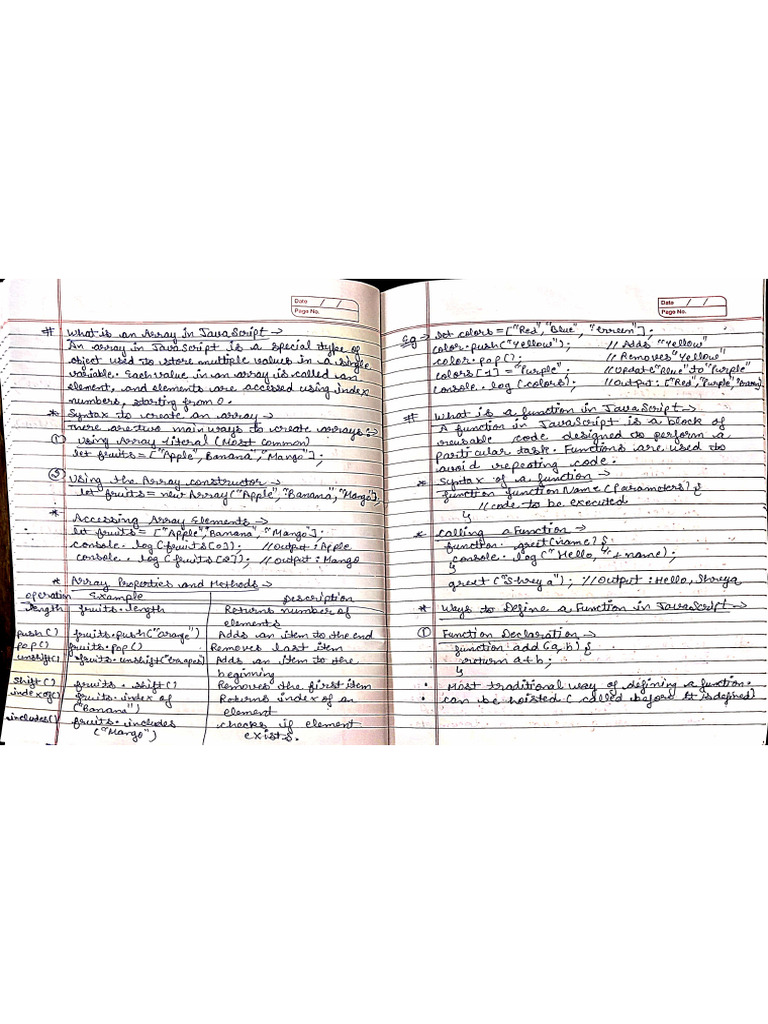 Date / /
Page No.
# What is an Array in JavaScript →
An array in JavaScript is a special type of
object used to store multiple values in a single
variable. Each value in an array is called an
element, and elements are accessed using index
numbers, starting from 0.
* Syntax to create an array →
There are two main ways to create arrays :-
① Using Array literal (Most Common)
let fruits = ["Apple", Banana", "Mango"];
② Using the Array constructor →
let fruits = new Array("Apple", "Banana", "Mango");
* Accessing Array Elements →
let fruits = ["Apple", "Banana", "Mango"];
console.log(fruits[0]); // Output : Apple
console.log(fruits[2]); // Output : Mango
* Array Properties and Methods →
operation Example Description
length fruits.length Returns number of
elements
push() fruits.push("orange") Adds an item to the end
pop() fruits.pop() Removes last item
unshift() fruits.unshift("Grapes") Adds an item to the
beginning
shift() fruits.shift() Removes the first item
indexof() fruits.index of Returns index of an
("Banana") element
includes() fruits.includes checks if element
("Mango") exists.
Date / /
Page No.
Eg → let colors = ["Red", "Blue", "Green"];
color.push("Yellow"); // Adds "Yellow"
color.pop(); // Removes "Yellow"
colors[1] = "Purple"; // Update "Blue" to "Purple"
console.log(colors); // Output : ["Red", "Purple",
# What is a function in JavaScript →
A function in JavaScript is a block of
reusable code designed to perform a
particular task. Functions are used to
avoid repeating code.
* Syntax of a function →
function function Name (parameters) {
// code to be executed
}
* Calling a Function →
function greet(name) {
console.log("Hello, " + name);
}
greet("Shreya"); // Output : Hello, Shreya
* Ways to Define a Function in JavaScript →
① Function Declaration →
function add (a, b) {
return a+b;
}
• Most traditional way of defining a function.
• can be hoisted ( called before it is defined)